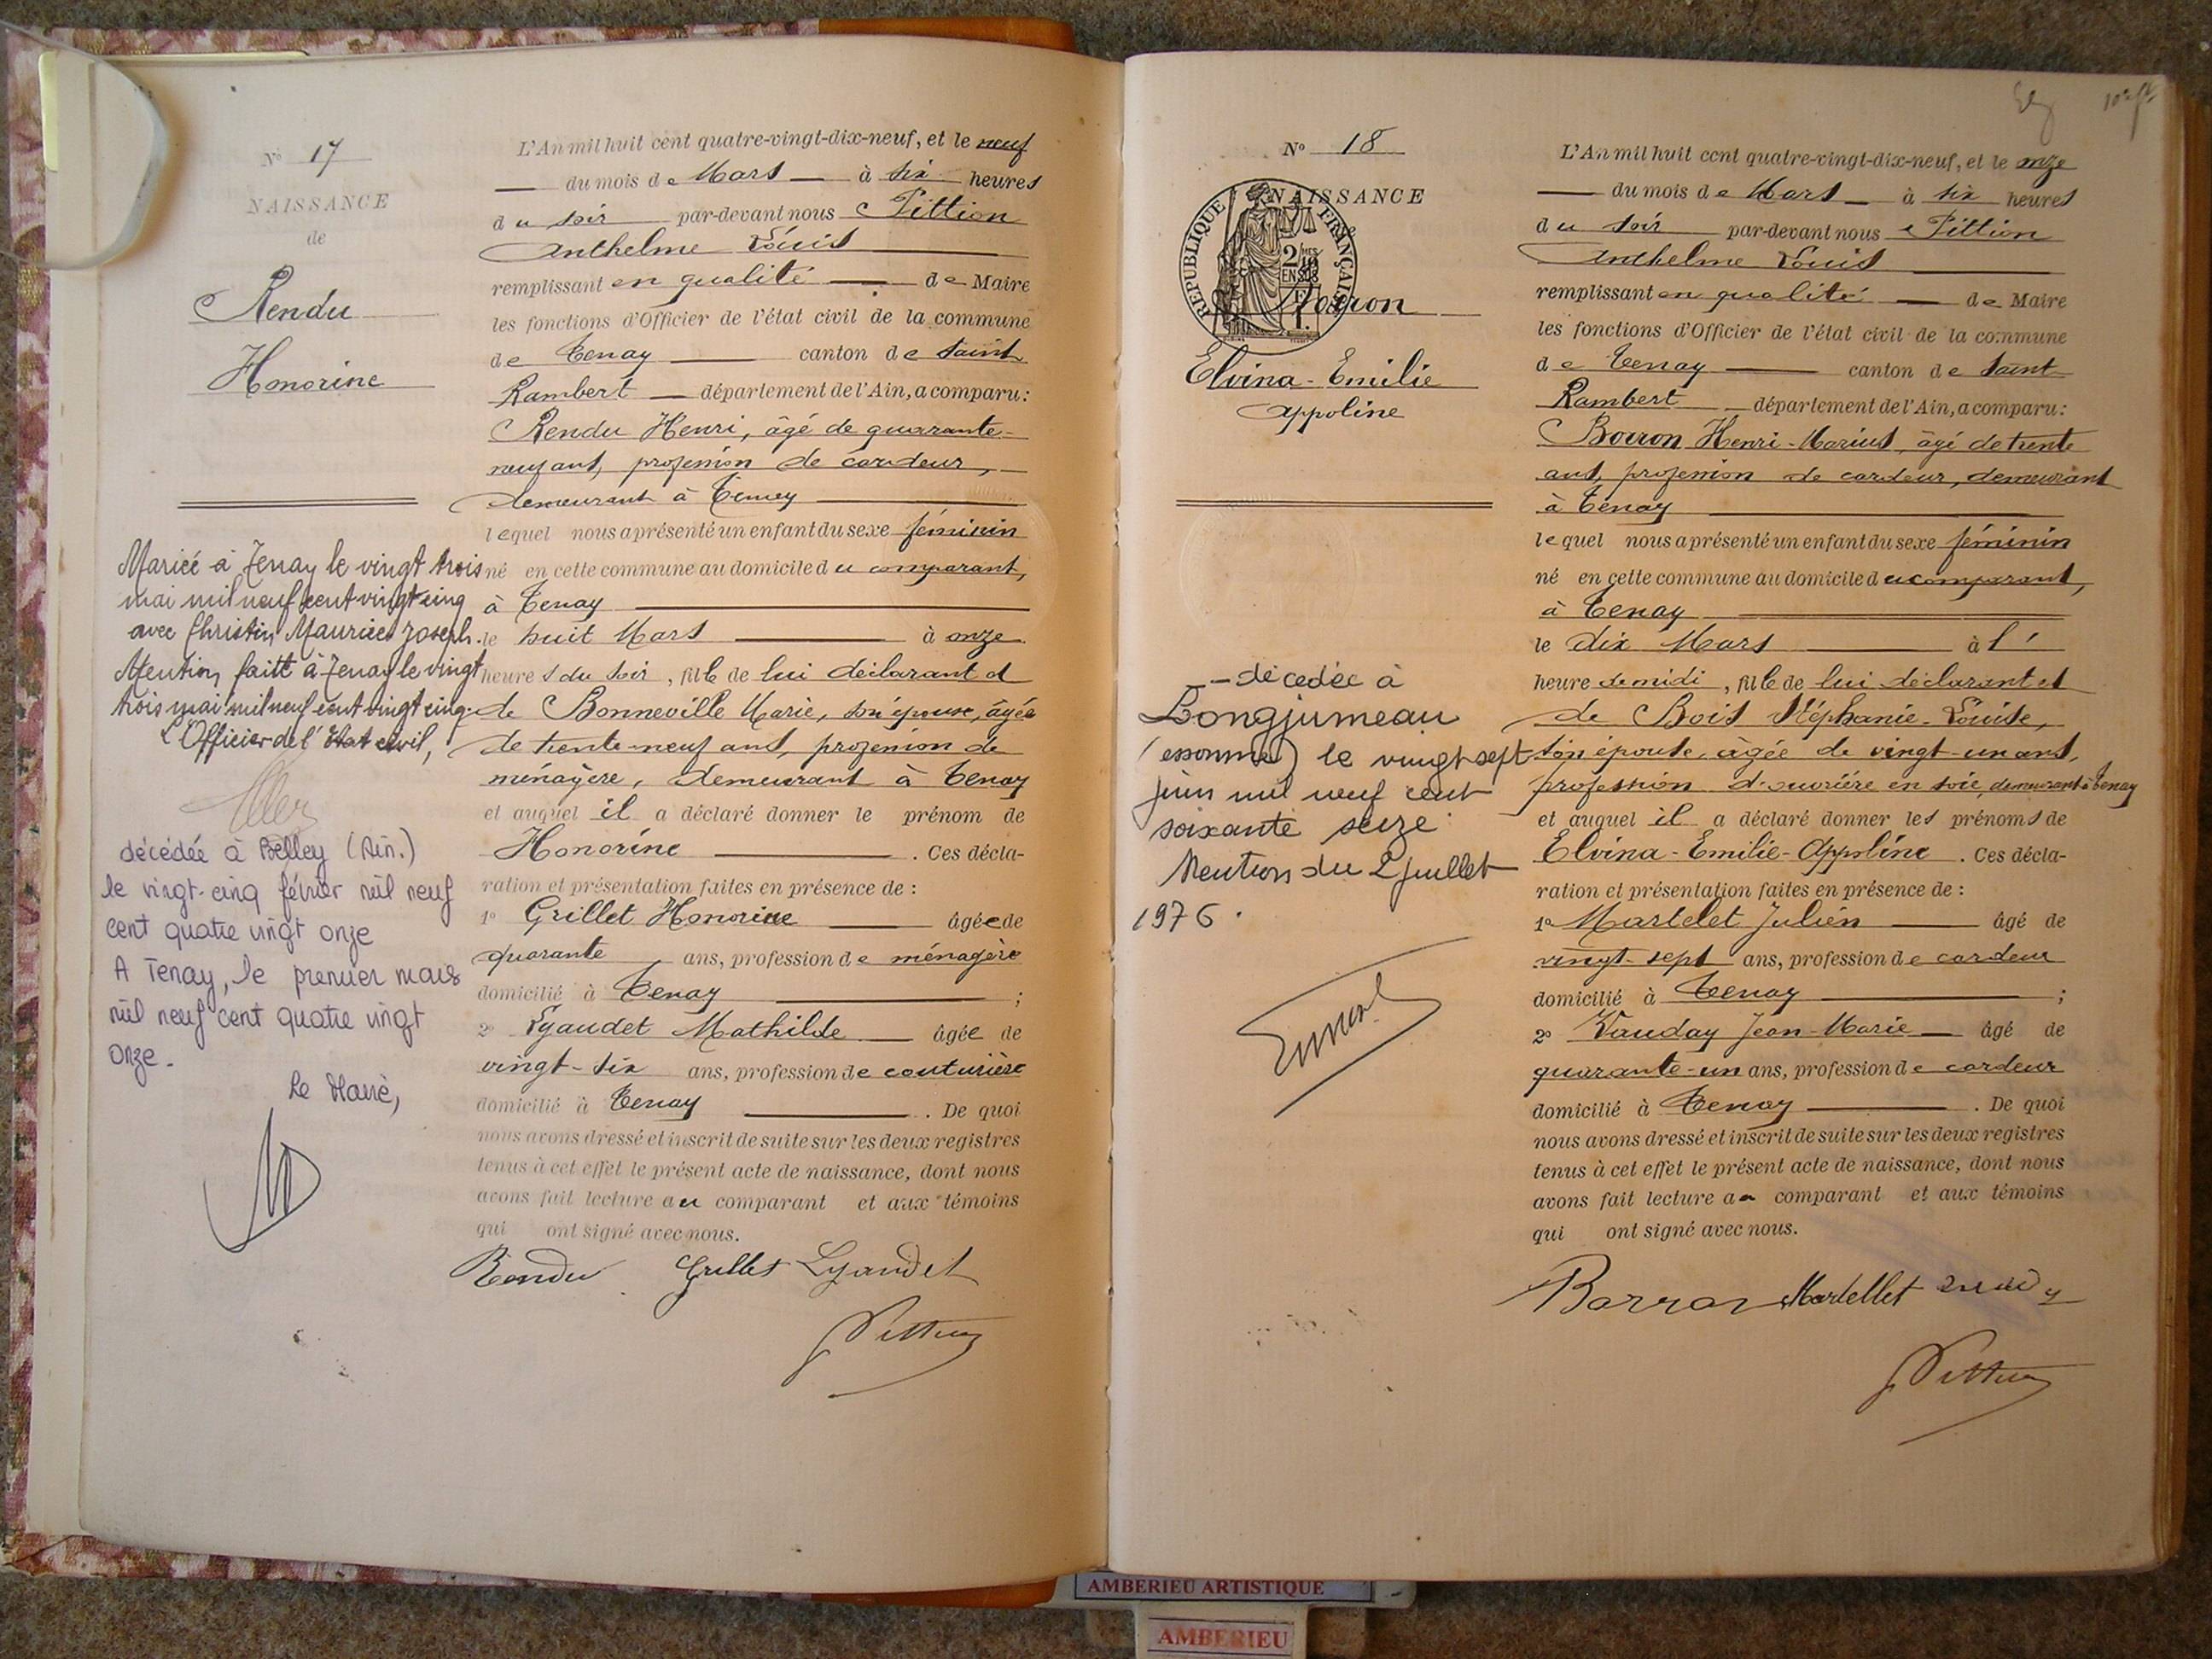 N° 17
NAISSANCE
de
Rendu
Honorine
Mariée à Tenay le vingt trois
mai mil neuf cent vingt cinq
avec Christin Maurice Joseph.
Mention faite à Tenay le vingt
trois mai mil neuf cent vingt cinq.
L'Officier de l'Etat civil,
décédée à Belley (Ain.)
le vingt-cinq février mil neuf
cent quatre vingt onze
A Tenay, le premier mars
mil neuf cent quatre vingt
onze.
Le Maire,
L'An mil huit cent quatre-vingt-dix-neuf, et le neuf
du mois de Mars à six heures
du soir par-devant nous Pittion
Anthelme Louis
remplissant en qualité de Maire
les fonctions d'Officier de l'état civil de la commune
de Tenay canton de Saint
Rambert département de l'Ain, a comparu:
Rendu Henri, âgé de quarante-
neuf ans, profession de cardeur,
demeurant à Tenay
lequel nous a présenté un enfant du sexe féminin
né en cette commune au domicile du comparant,
à Tenay
le huit Mars à onze
heures du soir, fille de lui déclarant et
de Bonneville Marie, son épouse, âgée
de trente-neuf ans, profession de
ménagère, demeurant à Tenay
et auquel il a déclaré donner le prénom de
Honorine. Ces décla-
ration et présentation faites en présence de :
1° Grillet Honorine âgée de
quarante ans, profession de ménagère
domicilié à Tenay ;
2° Lyaudet Mathilde âgée de
vingt-six ans, profession de couturière
domicilié à Tenay. De quoi
nous avons dressé et inscrit de suite sur les deux registres
tenus à cet effet le présent acte de naissance, dont nous
avons fait lecture au comparant et aux témoins
qui ont signé avec nous.
Rendu Grillet Lyaudet
Pittion
N° 18
NAISSANCE
RÉPUBLIQUE FRANÇAISE
2/10 EN SUS
Boiron
Elvina-Emilie
Appoline
- décédée à
Longjumeau
(essonne) le vingt sept
juin mil neuf cent
soixante seize
Mention du 2 juillet
1976.
L'An mil huit cent quatre-vingt-dix-neuf, et le onze
du mois de Mars à six heures
du soir par-devant nous Pittion
Anthelme Louis
remplissant en qualité de Maire
les fonctions d'Officier de l'état civil de la commune
de Tenay canton de Saint
Rambert département de l'Ain, a comparu:
Boiron Henri-Marius, âgé de trente
ans, profession de cardeur, demeurant
à Tenay
lequel nous a présenté un enfant du sexe féminin
né en cette commune au domicile du comparant,
à Tenay
le dix Mars à l'
heure de midi, fille de lui déclarant et
de Bois Stéphanie-Louise,
son épouse, âgée de vingt-un ans,
profession d'ouvrière en soie, demeurant à Tenay
et auquel il a déclaré donner les prénoms de
Elvina-Emilie-Appoline. Ces décla-
ration et présentation faites en présence de :
1° Martelet Julien âgé de
vingt-sept ans, profession de cardeur
domicilié à Tenay ;
2° Vauday Jean-Marie âgé de
quarante-un ans, profession de cardeur
domicilié à Tenay. De quoi
nous avons dressé et inscrit de suite sur les deux registres
tenus à cet effet le présent acte de naissance, dont nous
avons fait lecture au comparant et aux témoins
qui ont signé avec nous.
Martellet
Pittion
AMBERIEU ARTISTIQUE
AMBERIEU